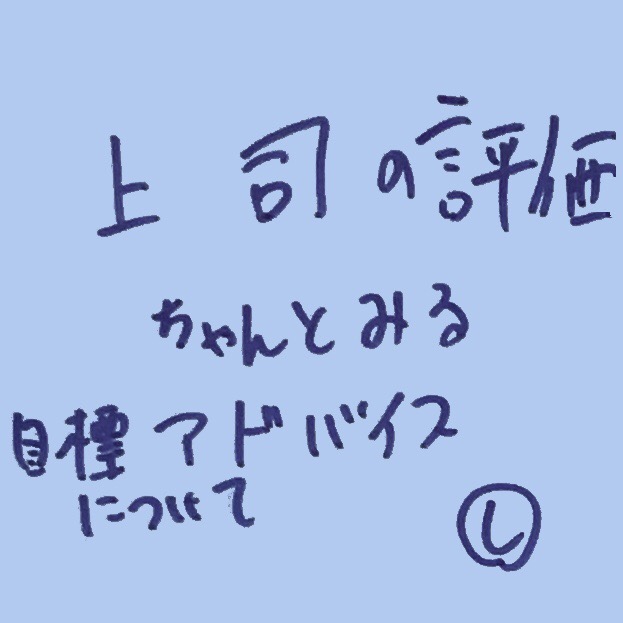 上司の評価
ちゃんとみる
目標アドバイス
について
し